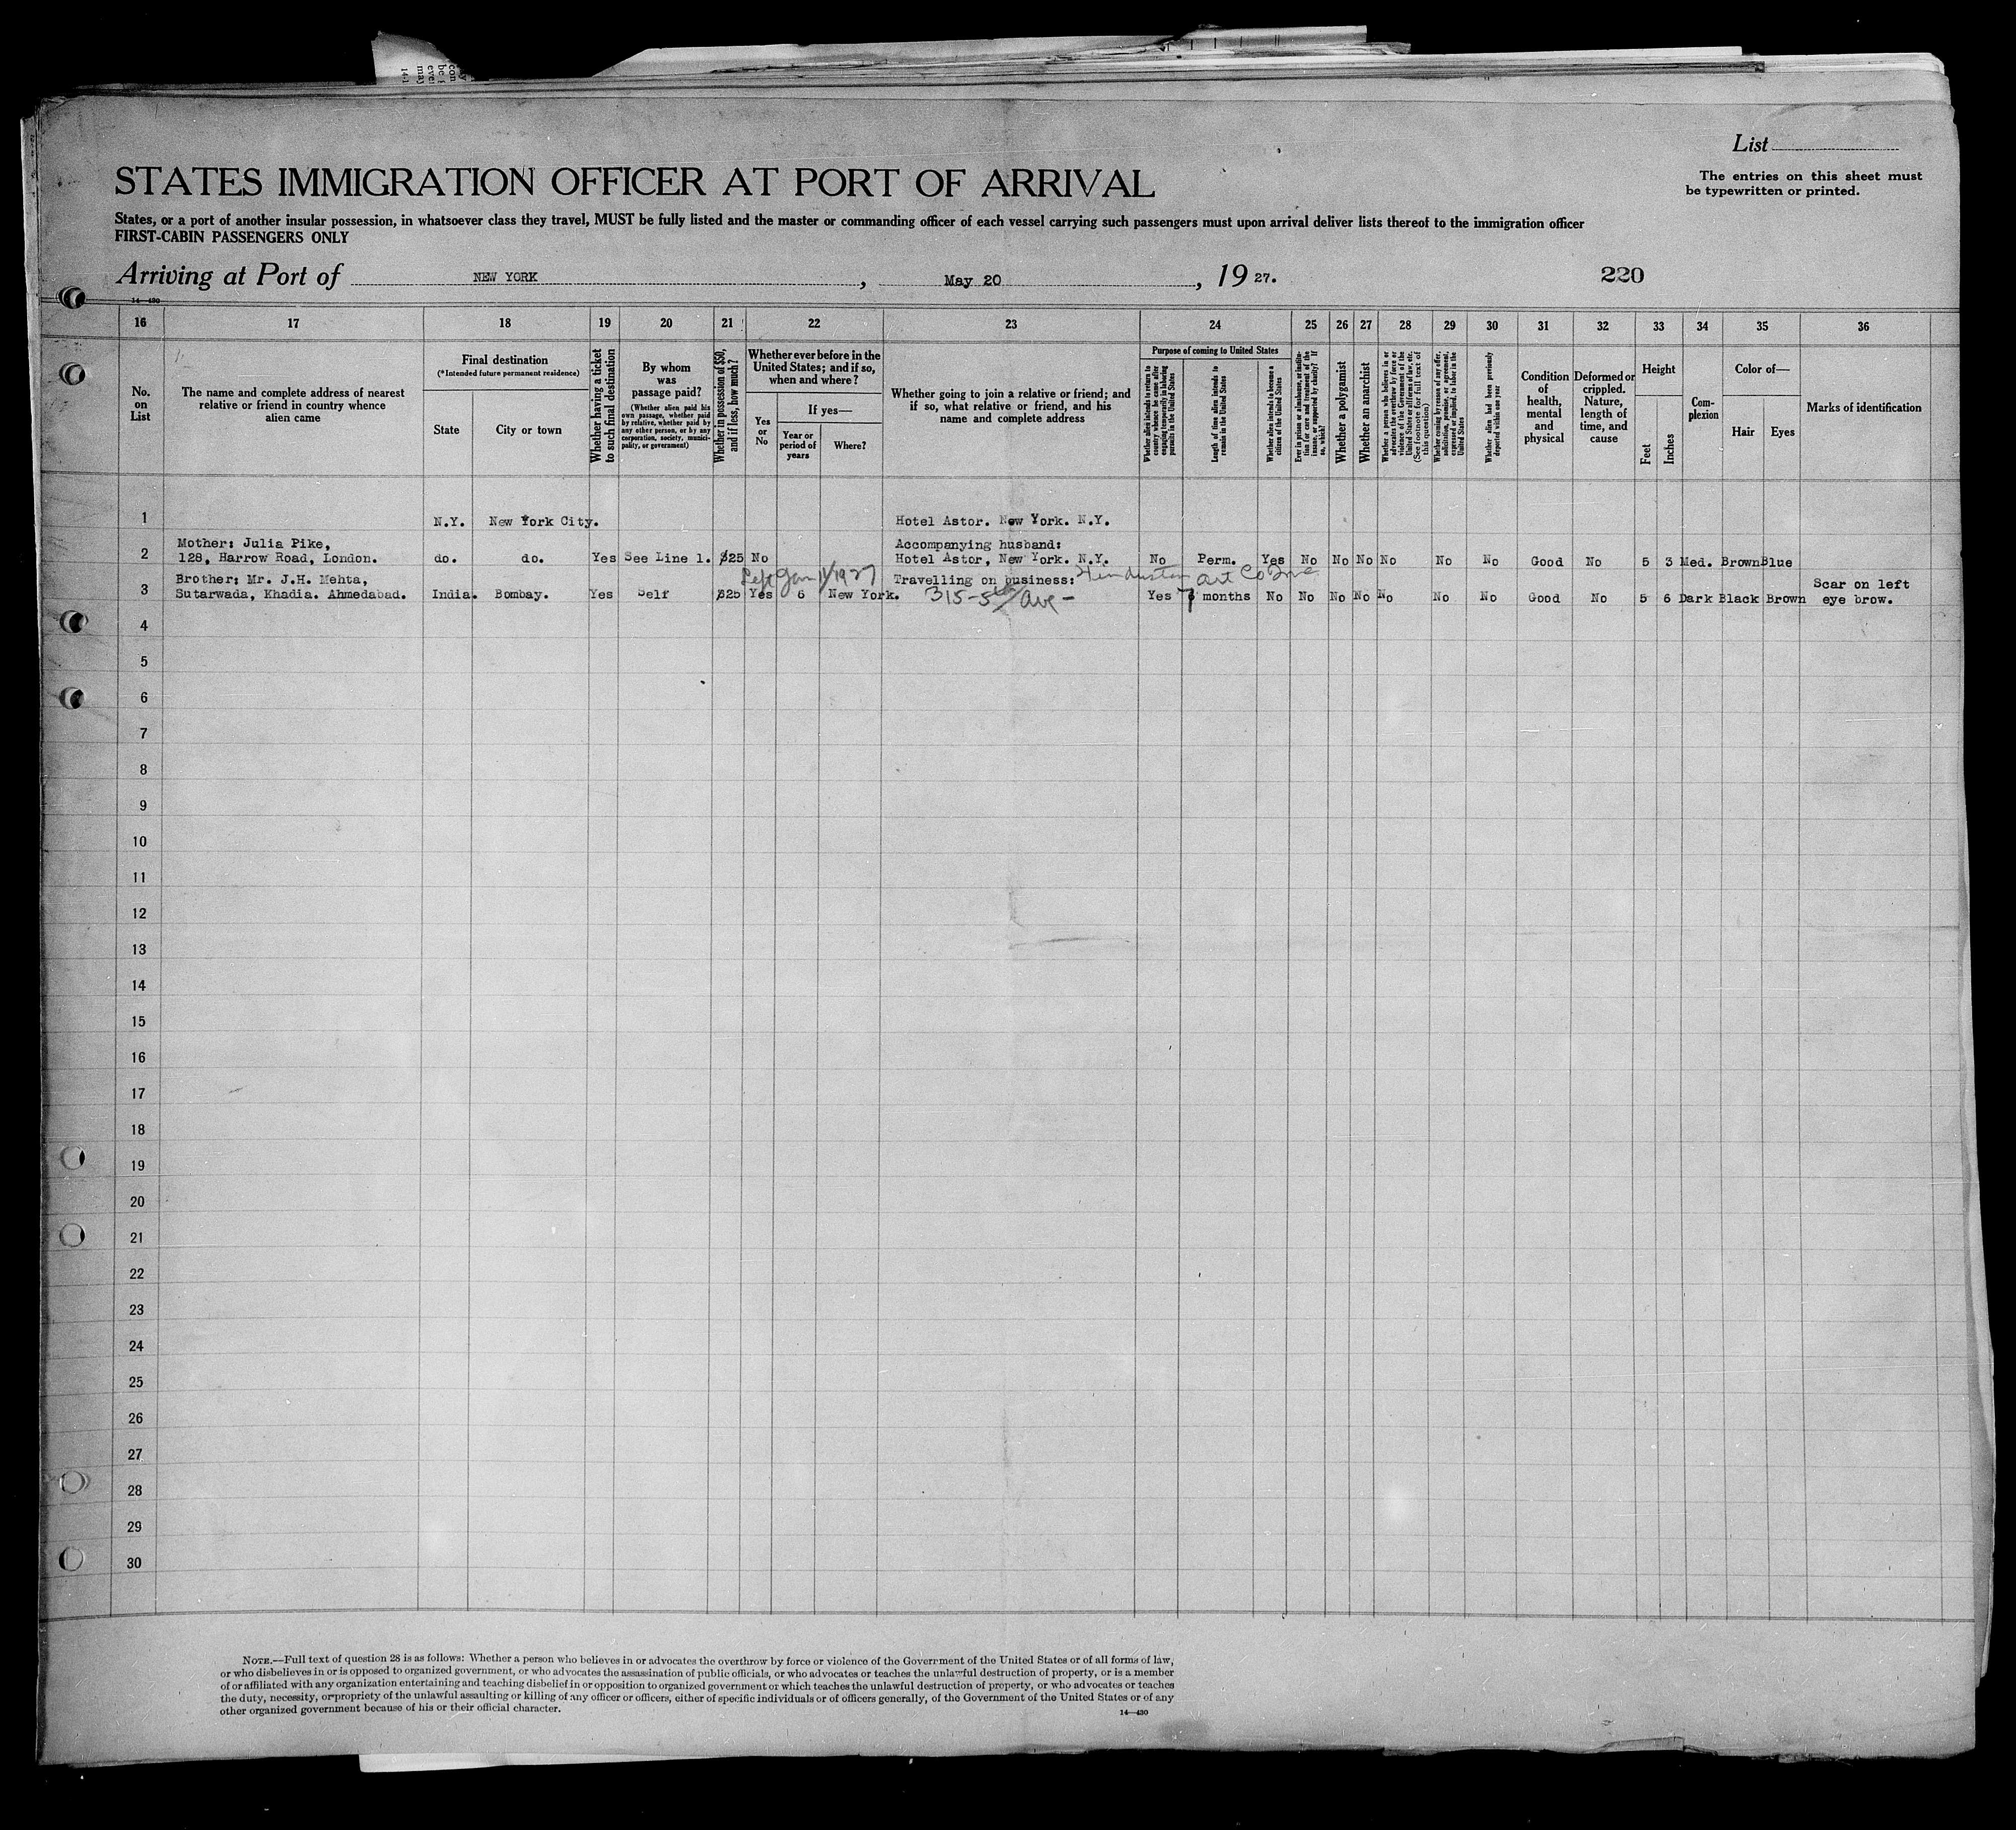 List
STATES IMMIGRATION OFFICER AT PORT OF ARRIVAL
The entries on this sheet must
be typewritten or printed.
States, or a port of another insular possession, in whatsoever class they travel, MUST be fully listed and the master or commanding officer of each vessel carrying such passengers must upon arrival deliver lists thereof to the immigration officer
FIRST-CABIN PASSENGERS ONLY
Arriving at Port of NEW YORK, May 20, 19 27. 220
14—430
16 17 18 19 20 21 22 23 24 25 26 27 28 29 30 31 32 33 34 35 36
No. on List
The name and complete address of nearest relative or friend in country whence alien came
Final destination
(*Intended future permanent residence)
State
City or town
Whether having a ticket to such final destination
By whom was passage paid?
(Whether alien paid his own passage, whether paid by relative, whether paid by any other person, or by any corporation, society, municipality, or government)
Whether in possession of $50, and if less, how much?
Whether ever before in the United States; and if so, when and where?
Yes or No
If yes—
Year or period of years
Where?
Whether going to join a relative or friend; and if so, what relative or friend, and his name and complete address
Purpose of coming to United States
Whether alien intends to return to country whence he came after engaging temporarily in laboring pursuits in the United States
Length of time alien intends to remain in the United States
Whether alien intends to become a citizen of the United States
Ever in prison or almshouse, or institution for care and treatment of the insane, or supported by charity? If so, which?
Whether a polygamist
Whether an anarchist
Whether a person who believes in or advocates the overthrow by force or violence of the Government of the United States or all forms of law, etc. (See footnote for full text of this question)
Whether coming by reason of any offer, solicitation, promise, or agreement, expressed or implied, to labor in the United States
Whether alien had been previously deported within one year
Condition of health, mental and physical
Deformed or crippled. Nature, length of time, and cause
Height
Feet
Inches
Complexion
Color of—
Hair
Eyes
Marks of identification
1 N.Y. New York City. Hotel Astor. New York. N.Y.
Mother: Julia Pike, Accompanying husband:
2 128, Harrow Road, London. do. do. Yes See Line 1. $25 No Hotel Astor, New York. N.Y. No Perm. Yes No No No No No No Good No 5 3 Med. Brown Blue
Left Jan 11/1927 Hindustan Art Co Inc
Brother: Mr. J.H. Mehta, Travelling on business: Scar on left
3 Sutarwada, Khadia. Ahmedabad. India. Bombay. Yes Self $25 Yes 6 New York. 315-5th Ave - Yes 7 months No No No No No No No Good No 5 6 Dark Black Brown eye brow.
4
5
6
7
8
9
10
11
12
13
14
15
16
17
18
19
20
21
22
23
24
25
26
27
28
29
30
NOTE.—Full text of question 28 is as follows: Whether a person who believes in or advocates the overthrow by force or violence of the Government of the United States or of all forms of law,
or who disbelieves in or is opposed to organized government, or who advocates the assassination of public officials, or who advocates or teaches the unlawful destruction of property, or is a member
of or affiliated with any organization entertaining and teaching disbelief in or opposition to organized government or which teaches the unlawful destruction of property, or who advocates or teaches
the duty, necessity, or propriety of the unlawful assaulting or killing of any officer or officers, either of specific individuals or of officers generally, of the Government of the United States or of any
other organized government because of his or their official character.
14—430